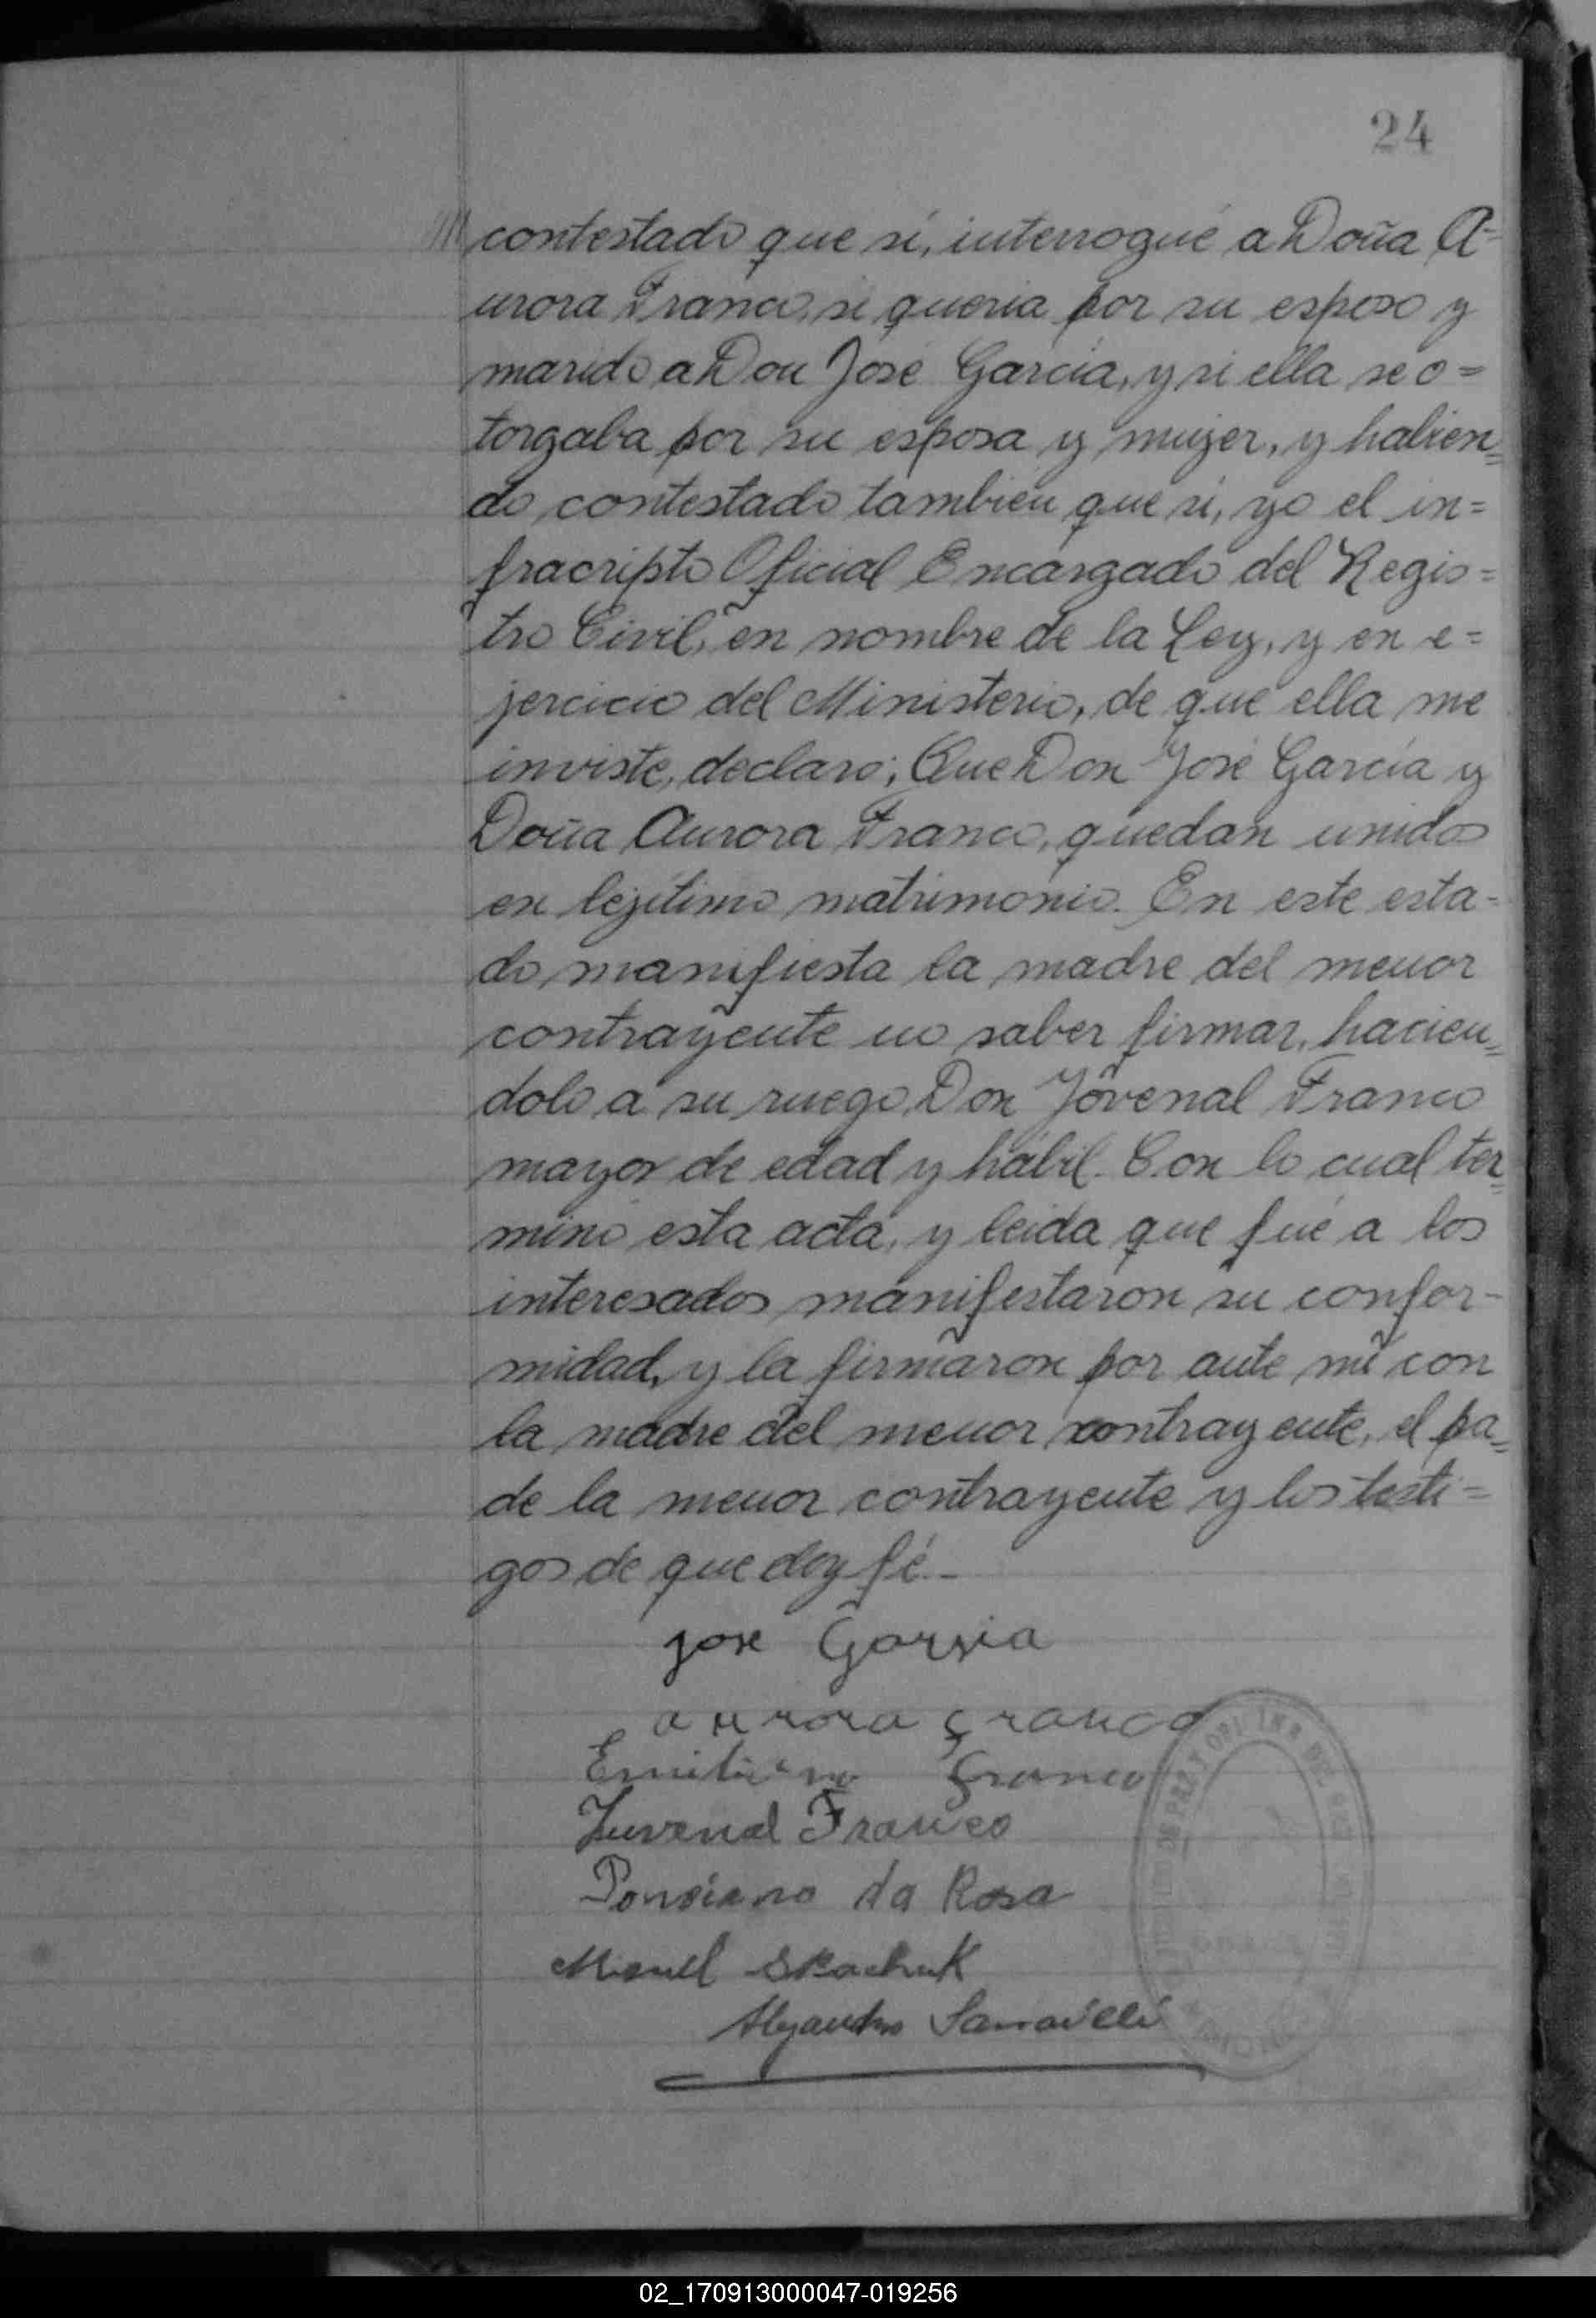 24
contestado que sí, interrogué a Doña A-
urora Franco, si queria por su esposo y
marido a Don José García, y si ella se o=
torgaba por su esposa y mujer, y habien=
do contestado también que si, yo el in=
fracripto Oficial Encargado del Regis=
tro Civil, en nombre de la Ley, y en e=
jercicio del Ministerio, de que ella me
inviste, declaro; Que Don José García y
Doña Aurora Franco, quedan unidos
en lejítimo matrimonio. En este esta-
do manifiesta la madre del menor
contrayente no saber firmar, hacien=
dolo a su ruego Don Jovenal Franco
mayor de edad y hábil. Con lo cual ter=
minó esta acta, y leida que fué a los
interesados manifestaron su confor-
midad, y la firmaron por ante mi con
la madre del menor contrayente, el pa=
de la menor contrayente y los testi=
gos de que doy fé.-
jose Garsia
aurora franco
Emiliano franco
Juvenal Franco
Ponsiano da Rosa
Miguel Skachuk
Alejandro
DE PAZ Y
02_170913000047-019256